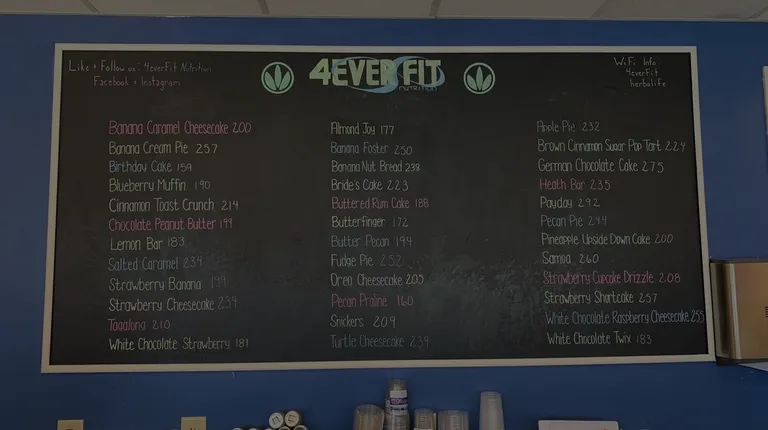 Like + Follow us: 4everFit Nutrition
Facebook + Instagram
4EVER FIT
NUTRITION
WiFi Info
4everFit
herbalife
Banana Caramel Cheesecake 200
Banana Cream Pie 257
Birthday Cake 159
Blueberry Muffin 190
Cinnamon Toast Crunch 214
Chocolate Peanut Butter 199
Lemon Bar 183
Salted Caramel 234
Strawberry Banana 199
Strawberry Cheesecake 234
Tagalong 210
White Chocolate Strawberry 181
Almond Joy 177
Banana Foster 250
Banana Nut Bread 238
Bride's Cake 223
Buttered Rum Cake 188
Butterfinger 172
Butter Pecan 194
Fudge Pie 252
Oreo Cheesecake 205
Pecan Praline 160
Snickers 209
Turtle Cheesecake 239
Apple Pie 232
Brown Cinnamon Sugar Pop Tart 224
German Chocolate Cake 275
Heath Bar 235
Payday 292
Pecan Pie 244
Pineapple Upside Down Cake 200
Samoa 260
Strawberry Cupcake Drizzle 208
Strawberry Shortcake 257
White Chocolate Raspberry Cheesecake 255
White Chocolate Twix 183